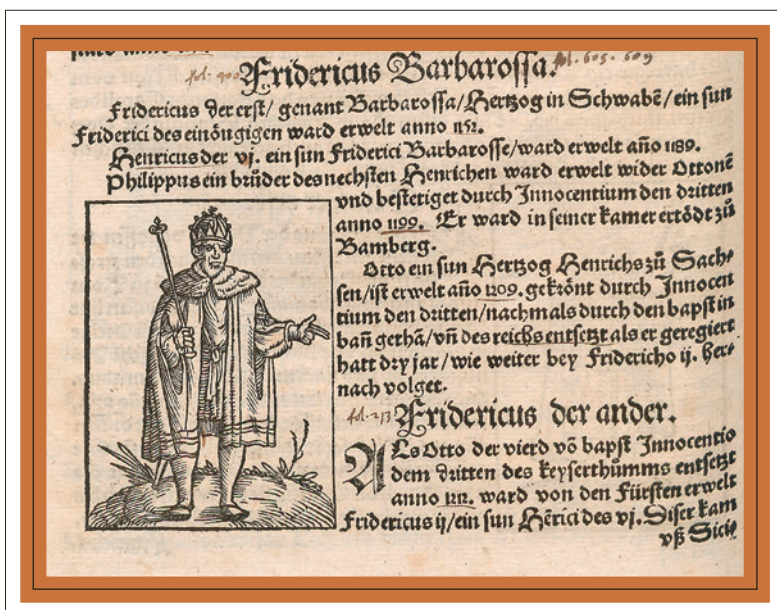 anno
fol. 400 Fridericus Barbarossa. fol. 605. 609
Fridericus der erst/ genant Barbarossa/Hertzog in Schwabē/ein sun
Friderici des einöugigen ward erwelt anno 1152.
Henricus der vj. ein sun Friderici Barbarosse/ward erwelt año 1189.
Philippus ein brůder des nechsten Henrichen ward erwelt wider Ottonē
vnd besteriget durch Innocentium den dritten
anno 1199. Er ward in seiner kamer ertödt zů
Bamberg.
Otto ein sun Hertzog Henrichs zů Sach⸗
sen/ist erwelt año 1209. gekrönt durch Innocen
tium den dritten/nachmals durch den bapst in
bañ gethā/vñ des reichs entsetzt als er geregiert
hatt dry jar/wie weiter bey Fridericho ij. her⸗
nach volget.
fol. 213 Fridericus der ander.
Als Otto der vierd vō bapst Innocentio
dem dritten des keyserthůmms entsetzt
anno 1212. ward von den Fürsten erwelt
Fridericus ij/ein sun Hērici des vj. Diser kam
vß Sicie